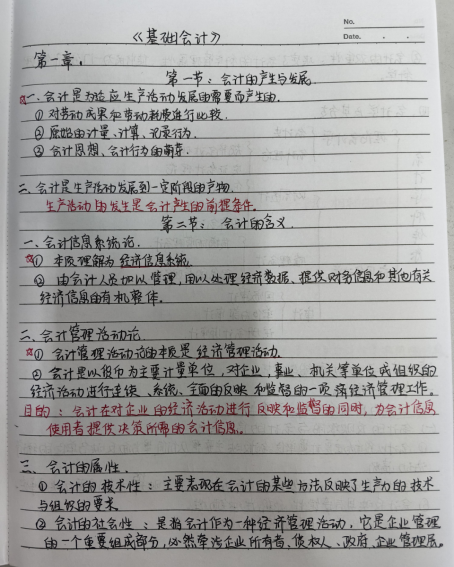 No.
Date.
《基础会计》
第一章。
第一节：会计的产生与发展.
☆一、会计是为适应生产活动发展的需要而产生的.
① 对劳动成果和劳动耗费进行比较.
② 原始的计量、计算、记录行为.
③ 会计思想、会计行为的萌芽.
二、会计是生产活动发展到一定阶段的产物.
生产活动的发生是会计产生的前提条件.
第二节： 会计的含义.
一、会计信息系统论.
☆① 本质理解为 经济信息系统.
② 由会计人员加以管理,用以处理经济数据、提供财务信息和其他有关
经济信息的有机整体.
二、会计管理活动论.
☆① 会计管理活动论的本质是 经济管理活动.
② 会计是以货币为主要计量单位，对企业,事业、机关等单位或组织的
经济活动进行连续、系统、全面的反映和监督的一项 经济管理工作。
目的：会计在对企业的经济活动进行反映和监督的同时,为会计信息
使用者提供决策所需的会计信息。
三、会计的属性.
① 会计的技术性：主要表现在会计的某些方法反映了生产力的技术
与组织的要求
② 会计的社会性：是指会计作为一种经济管理活动，它是企业管理
的一个重要组成部分,必然牵涉企业所有者、债权人、政府、企业管理层。